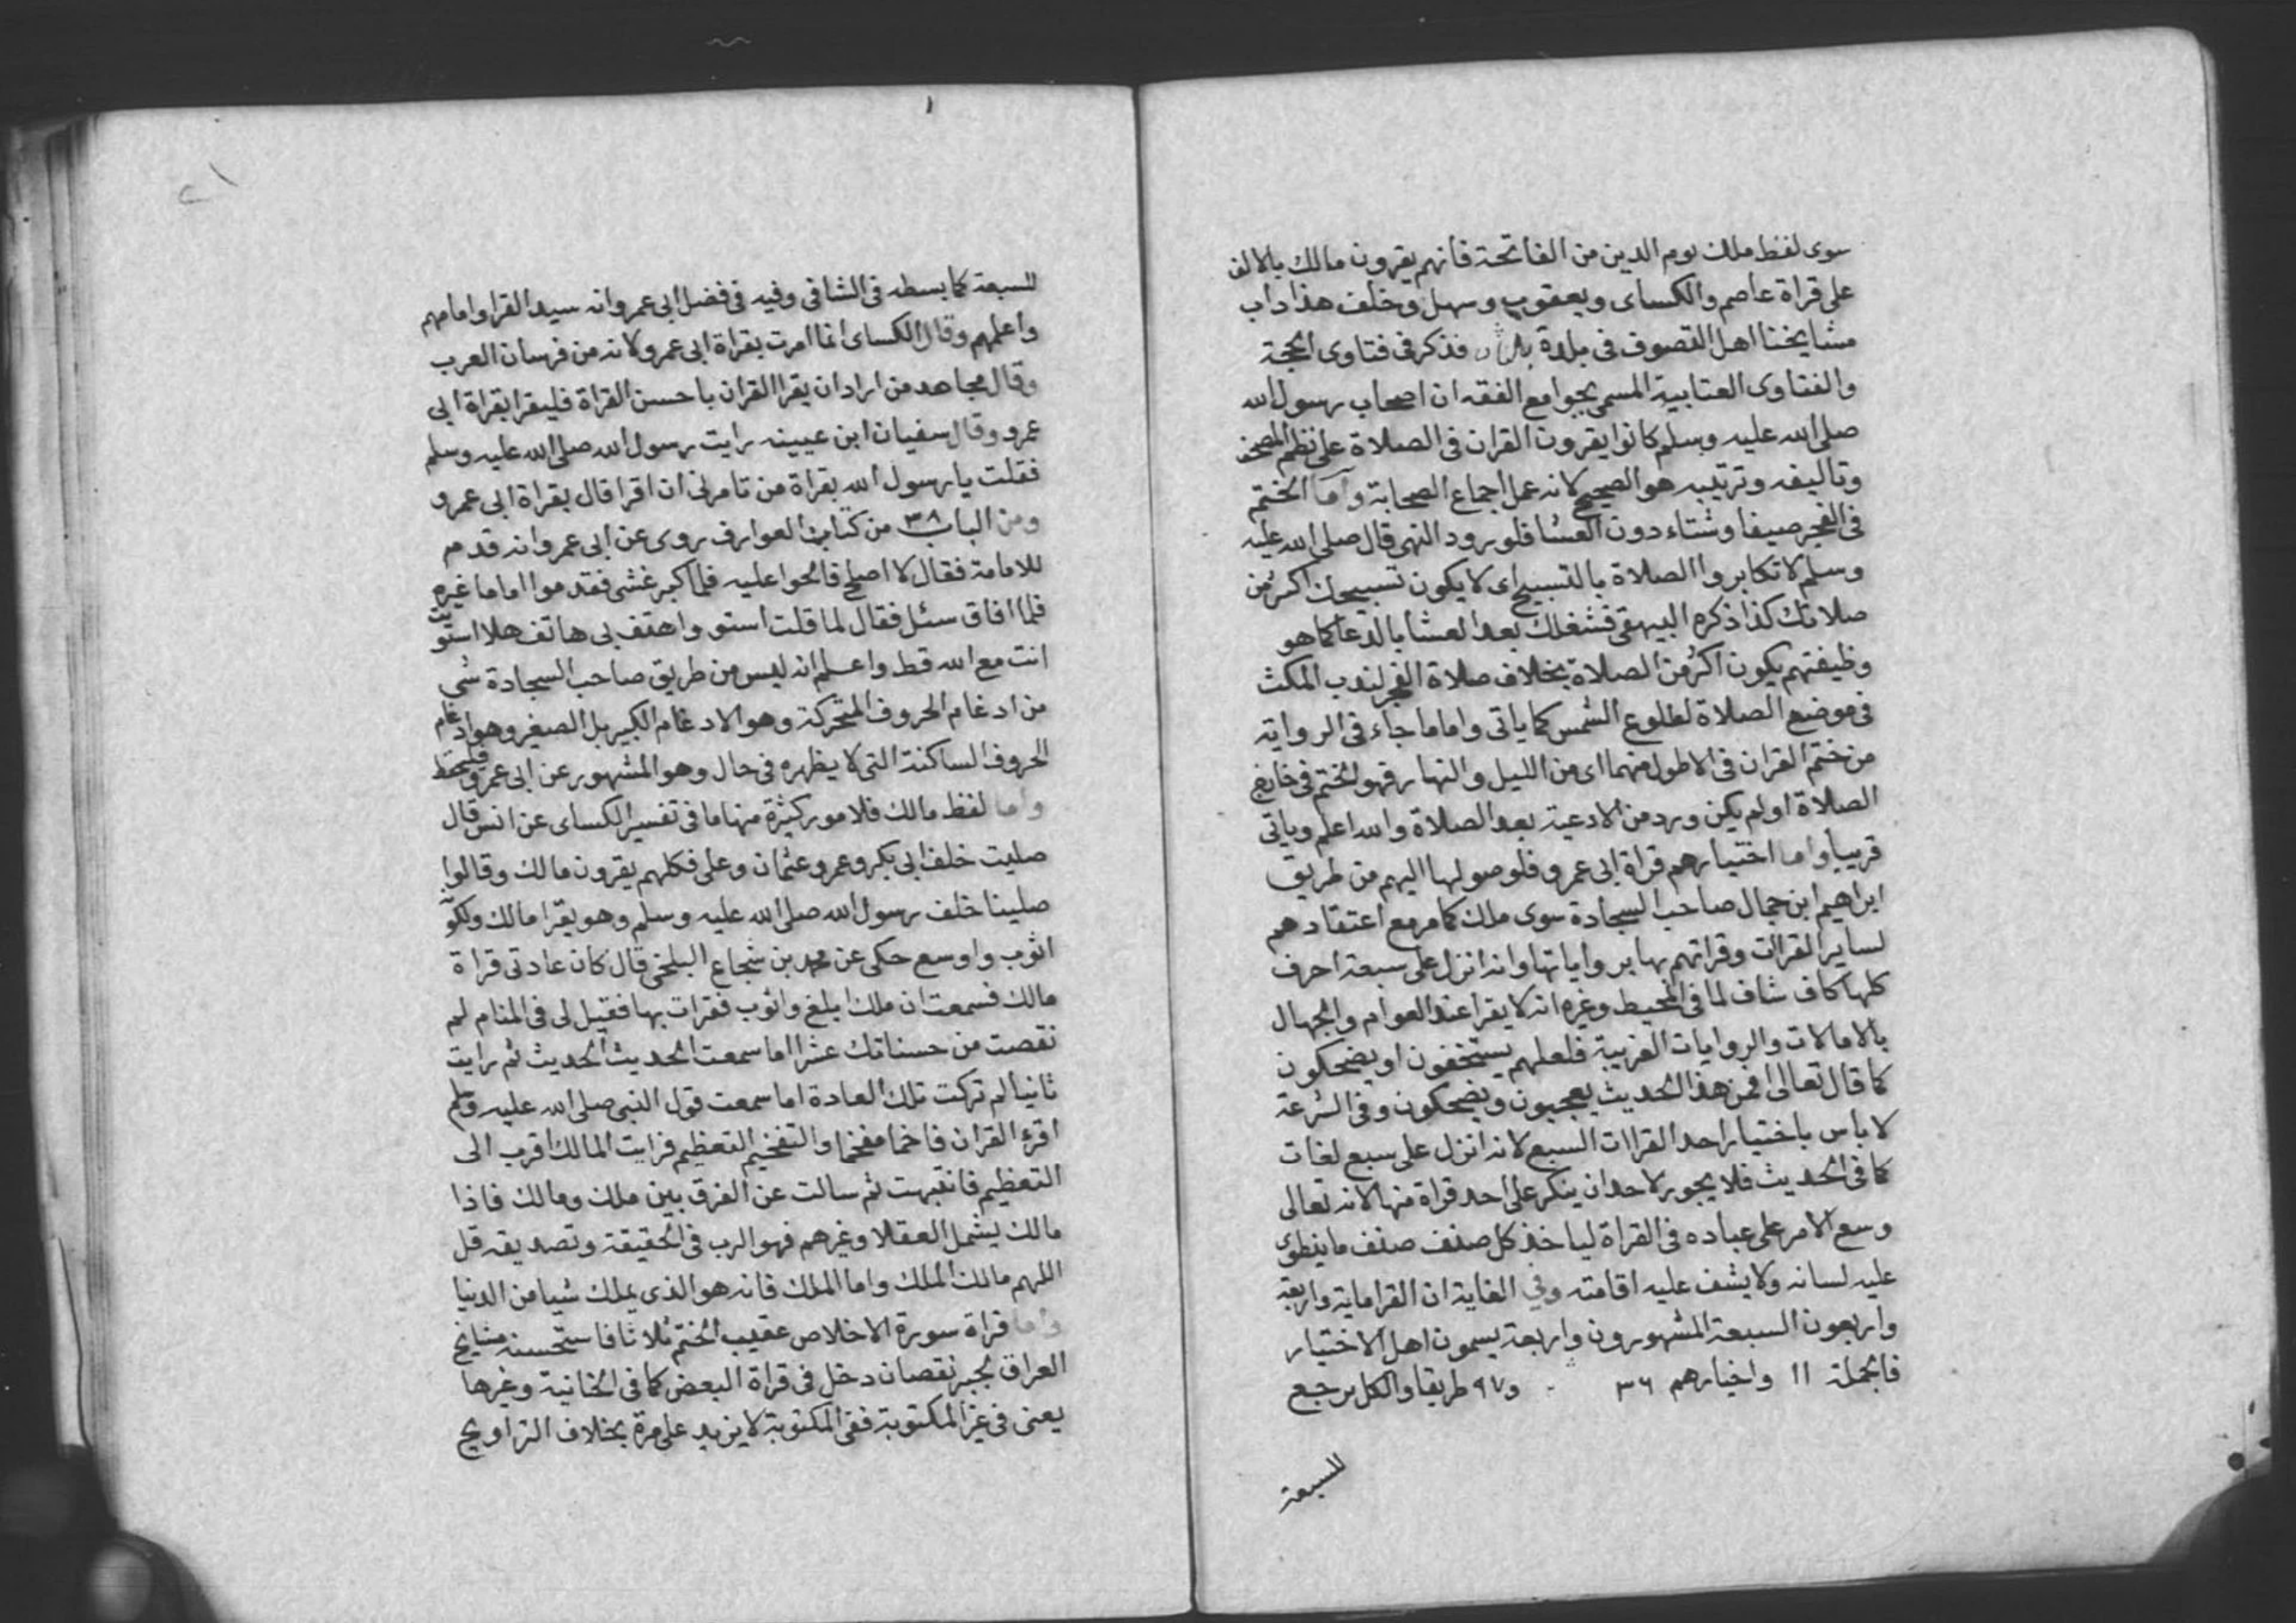 سوى لفظ ملك يوم الدين من الفاتحة فانهم يقرون مالك بالالف
على قراة عاصم والكساى ويعقوب وسهل وخلف هذا داب
مشايخنا اهل التصوف فى بلدة فذكر فى فتاوى الحجة
والفتاوى العتابية المسمى بجوامع الفقه ان اصحاب رسول الله
صلى الله عليه وسلم كانوا يقرون القران فى الصلاة على نظم المصحف
وتاليفه وترتيبه هو الصحيح لانه عمل اجماع الصحابة واما الختم
فى الفجر صيفا وشتاء دون العشا فلورود النهى قال صلى الله عليه
وسلم لا تكابروا الصلاة بالتسبيح اى لا يكون تسبيحك اكثر من
صلاتك كذا ذكره البيهقى فشغلك بعد العشا بالدعا كما هو
وظيفتهم يكون اكثر من الصلاة بخلاف صلاة الفجر لندب المكث
فى موضع الصلاة لطلوع الشمس كما ياتى واما ما جاء فى الرواية
من ختم القران فى الاطول منهما اى من الليل والنهار فهو الختم فى خارج
الصلاة او لم يكن ورد من الادعية بعد الصلاة والله اعلم وياتى
قريبا واما اختيارهم قراة ابى عمرو فلوصولها اليهم من طريق
ابراهيم ابن جمال صاحب السجادة سوى ملك كما مر مع اعتقادهم
لساير القرات وقراتهم بها بر واياتها وانه انزل على سبعة احرف
كلها كاف شاف لما فى المحيط وغيره انه لا يقرا عند العوام والجهال
بالامالات والروايات الغريبة فلعلهم يستخفون او يضحكون
كما قال تعالى افمن هذا الحديث يعجبون ويضحكون وفى الشرعة
لا باس باختيار احد القراات السبع لانه انزل على سبع لغات
كما فى الحديث فلا يجوز لاحد ان ينكر على احد قراة منها لانه تعالى
وسع الامر على عباده فى القراة لياخذ كل صنف صنف ما ينطق
عليه لسانه ولا يشف عليه اقامته وفي الغاية ان القراماية واربعة
واربعون السبعة المشهورون واربعة يسمون اهل الاختيار
فالجملة ١١ واخيارهم ٣٦ و٩٧ طريقا والكل يرجع
للسبعة
للسبعة كما بسطه فى الشافى وفيه فى فضل ابى عمرو انه سيد القرا وامامهم
واعلمهم وقال الكساى انما امرت بقراة ابى عمرو لانه من فرسان العرب
وقال مجاهد من اراد ان يقرا القران باحسن القراة فليقرا بقراة ابى
عمرو وقال سفيان ابن عيينه رايت رسول الله صلى الله عليه وسلم
فقلت يا رسول الله بقراة من تامرنى ان اقرا قال بقراة ابى عمرو
ومن الباب ٣٨ من كتاب العوارف روى عن ابى عمرو انه قدم
للامامة فقال لا اصلح فالحوا عليه فلما كبر غشى فقدموا اماما غيره
فلما افاق سئل فقال لما قلت استووا هتف بى هاتف هلا استويت
انت مع الله قط واعلم انه ليس من طريق صاحب السجادة شى
من ادغام الحروف المتحركة وهو الادغام الكبير بل الصغير وهو ادغام
الحروف الساكنة التى لا يظهره فى حال وهو المشهور عن ابى عمرو فليحفظ
واما لفظ مالك فلامور كثيرة منها ما فى تفسير الكساى عن انس قال
صليت خلف ابى بكر وعمر وعثمان وعلى فكلهم يقرون مالك وقالوا
صلينا خلف رسول الله صلى الله عليه وسلم وهو يقرا مالك ولكونه
اثوب واوسع حكى عن محمد بن شجاع البلخى قال كان عادتى قراة
مالك فسمعت ان ملك ابلغ واثوب فقرات بها فقيل لى فى المنام لم
نقصت من حسناتك عشرا اما سمعت الحديث الحديث ثم رايت
ثانيا لم تركت تلك العادة اما سمعت قول النبى صلى الله عليه وسلم
اقرء القران فاخما مفخما والتفخيم التعظيم فرايت المالك اقرب الى
التعظيم فانتبهت ثم سالت عن الفرق بين ملك ومالك فاذا
مالك يشمل العقلا وغيرهم فهو الرب فى الحقيقة وتصديقه قل
اللهم مالك الملك واما الملك فانه هو الذى يملك شيا من الدنيا
واما قراة سورة الاخلاص عقيب الختم ثلاثا فاستحسنه مشايخ
العراق لجبر نقصان دخل فى قراة البعض كما فى الخانية وغيرها
يعنى فى غير المكتوبة ففى المكتوبة لا يزيد على مرة بخلاف التراويح